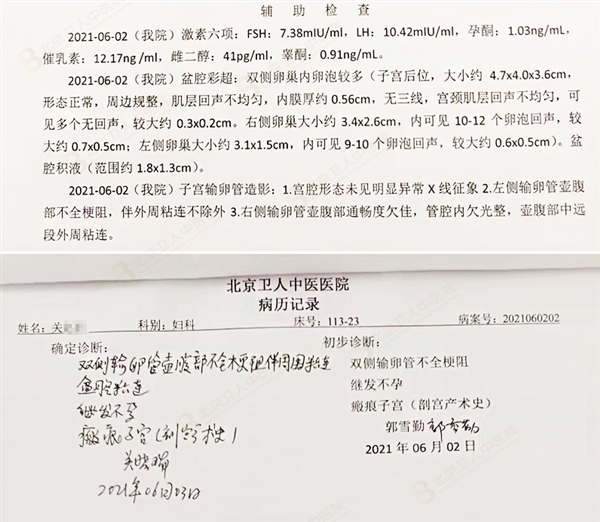 辅 助 检 查
2021-06-02（我院）激素六项：FSH：7.38mIU/ml，LH：10.42mIU/ml，孕酮：1.03ng/mL，
催乳素：12.17ng/ml，雌二醇：41pg/ml，睾酮：0.91ng/mL。
2021-06-02（我院）盆腔彩超：双侧卵巢内卵泡较多（子宫后位，大小约 4.7x4.0x3.6cm，
形态正常，周边规整，肌层回声不均匀，内膜厚约 0.56cm，无三线，宫颈肌层回声不均匀，可
见多个无回声，较大约 0.3x0.2cm。右侧卵巢大小约 3.4x2.6cm，内可见 10-12 个卵泡回声，较
大约 0.7x0.5cm；左侧卵巢大小约 3.1x1.5cm，内可见 9-10 个卵泡回声，较大约 0.6x0.5cm）。盆
腔积液（范围约 1.8x1.3cm）。
2021-06-02（我院）子宫输卵管造影：1.宫腔形态未见明显异常 X 线征象 2.左侧输卵管壶腹
部不全梗阻，伴外周粘连不除外 3.右侧输卵管壶腹部通畅度欠佳，管腔内欠光整，壶腹部中远
段外周粘连。
北京卫人中医医院
病历记录
姓名：关 科别：妇科 床号：113-23 病案号：2021060202
确定诊断： 初步诊断：
双侧输卵管壶腹部不全梗阻伴周围粘连 双侧输卵管不全梗阻
盆腔粘连 继发不孕
继发不孕 瘢痕子宫（剖宫产术史）
瘢痕子宫（剖宫产术史） 郭雪勤
2021年06月03日 2021 年 06 月 02 日